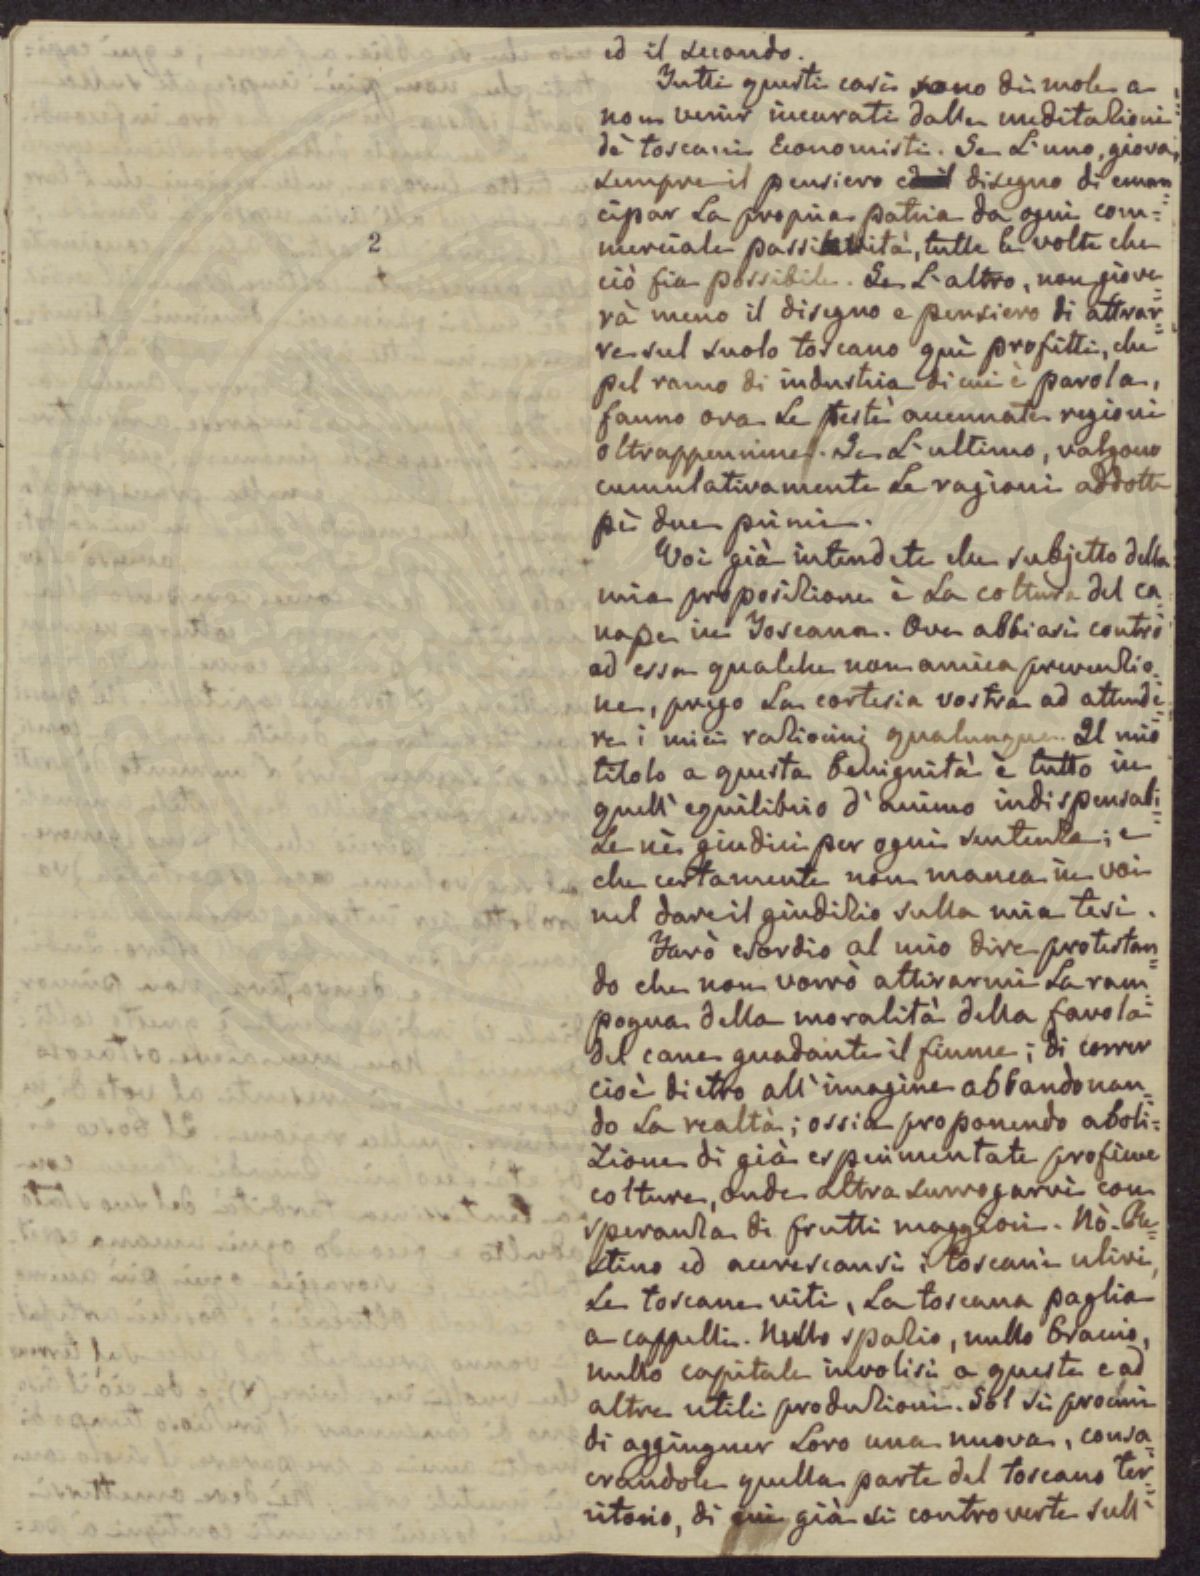 ed il secondo.
Tutti questi casi sono di mole a
non venir incurati dalle meditazioni
dè toscani Economisti. Se L'uno, giova,
sempre il pensiero ed il disegno di eman=
cipar La propria patria da ogni com=
merciale passività, tutte le volte che
2
ciò fia possibile. Se L'altro, non giove=
rà meno il disegno e pensiero di attrar=
re sul suolo toscano què profitti, che
pel ramo di industria di cui è parola,
fanno ora Le testè accennate regioni
oltrappennine. Se L'ultimo, valgono
cumulativamente Le ragioni addotte
pè due primi.
Voi già intendete che subjetto della
mia proposizione è La coltura del ca=
nape in Toscana. Ove abbiasi contro
ad essa qualche non amica prevenzio=
ne, prego La cortesia vostra ad attende=
re i miei raziocinj qualunque. Il mio
titolo a questa benignità è tutto in
quell'equilibrio d'animo indispensabi=
Le nèi giudici per ogni sentenza; e
che certamente non manca in voi
nel dare il giudizio sulla mia tesi.
Farò esordio al mio dire protestan=
do che non vorrò attirarmi La ram=
pogna della moralità della favola
del cane guadante il fiume; di correr
cioè dietro all'imagine abbandonan=
do La realtà; ossia proponendo aboli=
zione di già esperimentate proficue
colture, onde altra surrogarvi con
speranza di frutti maggiori. Nò. Re=
stino ed accrescansi i toscani ulivi,
Le toscane viti, La toscana paglia
a cappelli. Nullo spazio, nullo braccio,
nullo capitale involisi a queste e ad
altre utili produzioni. Sol si procuri
di aggiugner Loro una nuova, consa=
crandole quella parte del toscano ter=
ritorio, di cui già si controverte sull'